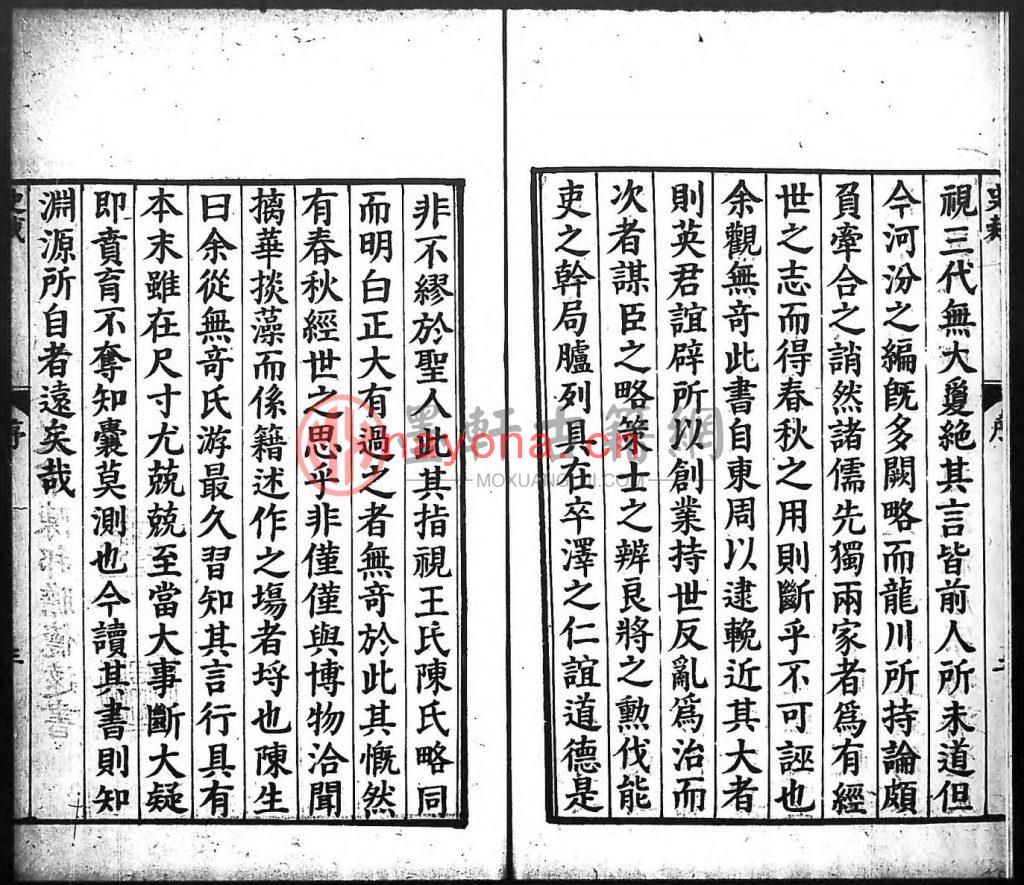 視三代無大敻絶其言皆前人所未道但
今河汾之編旣多闕略而龍川所持論頗
負牽合之誚然諸儒先獨兩家者爲有經
世之志而得春秋之用則斷乎不可誣也
余觀無竒此書自東周以逮輓近其大者
則英君誼辟所以創業持世反亂爲治而
次者謀臣之略策士之辨良將之勲伐能
吏之幹局臚列具在卒澤之仁誼道德是
非不繆於聖人此其指視王氏陳氏略同
而明白正大有過之者無竒於此其慨然
有春秋經世之思乎非僅僅與博物洽聞
摛華掞藻而係籍述作之塲者埒也陳生
曰余從無竒氏游最久習知其言行具有
本末雖在尺寸尤兢兢至當大事斷大疑
即賁育不奪知囊莫測也今讀其書則知
淵源所自者遠矣哉
序
二
墨軒古籍網
nayona.cn
MOXUANGUJI.COM